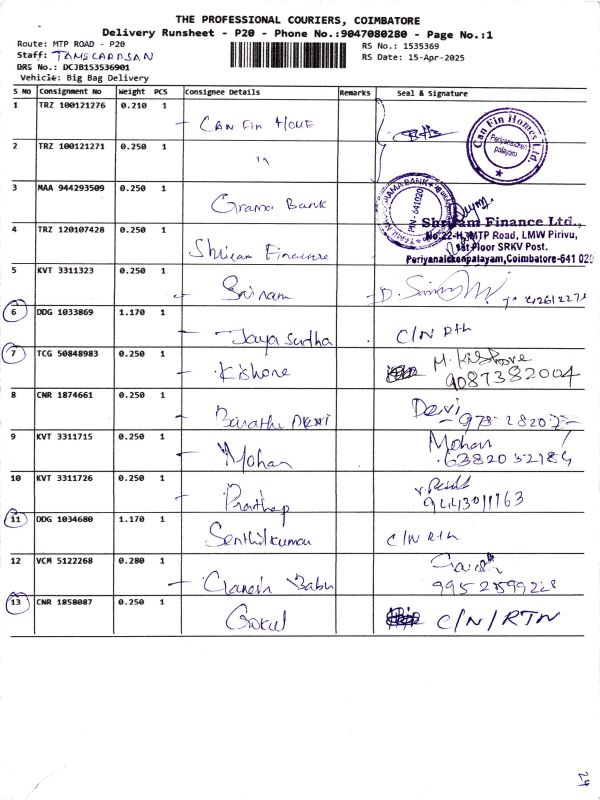 THE PROFESSIONAL COURIERS, COIMBATORE
Delivery Runsheet - P20 - Phone No.:9047080280 - Page No.:1
Route: MTP ROAD - P20
RS No.: 1535369
Staff:
DRS No.: DCJB153536901
RS Date: 15-Apr-2025
Vehicle: Big Bag Delivery
S No Consignment No Weight PCS Consignee Details Remarks Seal & Signature
1 TRZ 100121276 0.210 1 Can Fin Home
Can Fin Homes Ltd.
Periyanaicken palayam
2 TRZ 100121271 0.250 1 "
3 MAA 944293509 0.250 1 Grama Bank
PIN - 641020
4 TRZ 120107428 0.250 1 Shriram Finance
Shriram Finance Ltd.,
No:22-H, MTP Road, LMW Pirivu,
1st Floor SRKV Post.
Periyanaickenpalayam,Coimbatore-641 020
5 KVT 3311323 0.250 1 Sairam
6 DDG 1033869 1.170 1 Jaya sudha C/N Rtn
7 TCG 50848983 0.250 1 Kishore M. Kishore
9087382004
8 CNR 1874661 0.250 1 Barathi Devi Devi
9 KVT 3311715 0.250 1 Mohan Mohan
6382032184
10 KVT 3311726 0.250 1 Prathap
9443011163
11 DDG 1034680 1.170 1 Senthilkumar C/N Rtn
12 VCM 5122268 0.280 1 Ganesh Babu
13 CNR 1858087 0.250 1 Gokul C/N/RTN
24